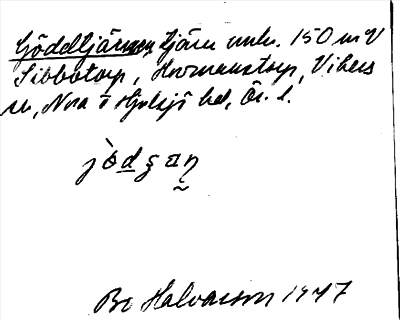 Gäddtjärnen, tjärn umk. 150 m V
Sibbotorp, Hermanstorp, Vikers
sn, Nora o Hjulsjö bd, Ör. l.
Bo Halvarson 1947